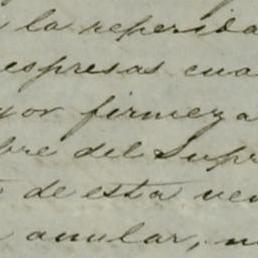 la referida
espresas cua
yor firmeza
bre del Supr
de esta ven
anular, n